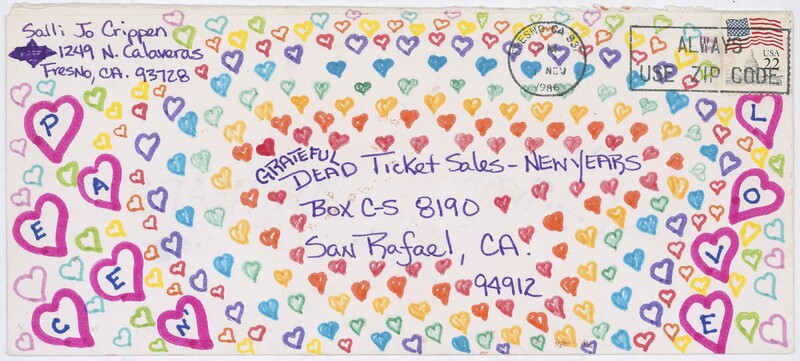 Salli Jo Crippen
1249 N. Calaveras
Fresno, CA. 93728
FRESNO, CA 93
PM
NOV
1986
ALWAYS
USE ZIP CODE
USA
22
GRATEFUL
DEAD Ticket Sales - NEW YEARS
Box C-S 8190
San Rafael, CA.
94912
P
E
A
C
E
N'
L
O
V
E